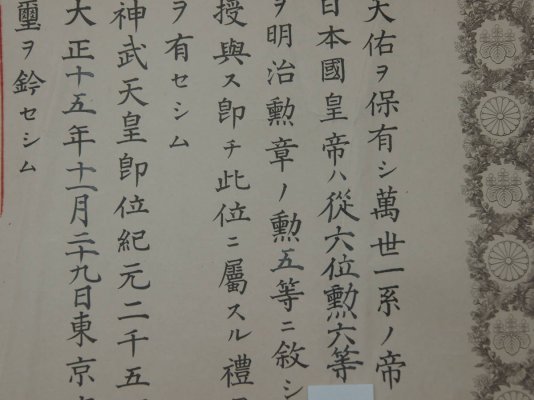 天佑ヲ保有シ萬世一系ノ帝
日本國皇帝ハ從六位勲六等
ヲ明治勲章ノ勲五等ニ敘シ
授與ス卽チ此位ニ屬スル禮
ヲ有セシム
神武天皇卽位紀元二千五
大正十五年十一月二十九日東京
璽ヲ鈐セシム